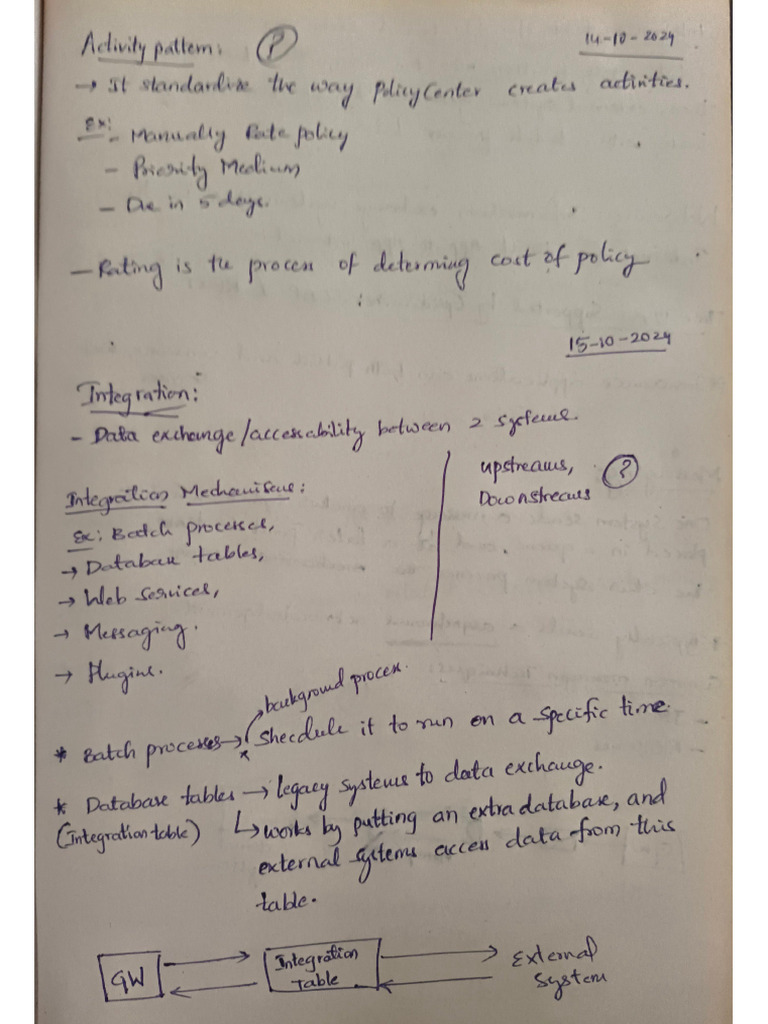 Activity pattern: (P)
14-10-2024
→ It standardize the way PolicyCenter creates activities.
Ex:- Manually Rate policy
- Priority Medium
- Due in 5 days.
- Rating is the process of determing cost of policy
15-10-2024
Integration:
- Data exchange/accessability between 2 systems.
upstreams, (?)
Downstreams
Integration Mechanisms:
Ex: Batch processes,
→ Database tables,
→ Web Services,
→ Messaging.
→ Plugins.
background process.
* Batch processes → Shecdule it to run on a specific time.
* Database tables → legacy systems to data exchange.
(Integration table) ↳ works by putting an extra database, and
external systems access data from this
table.
GW
Integration
Table
External
System